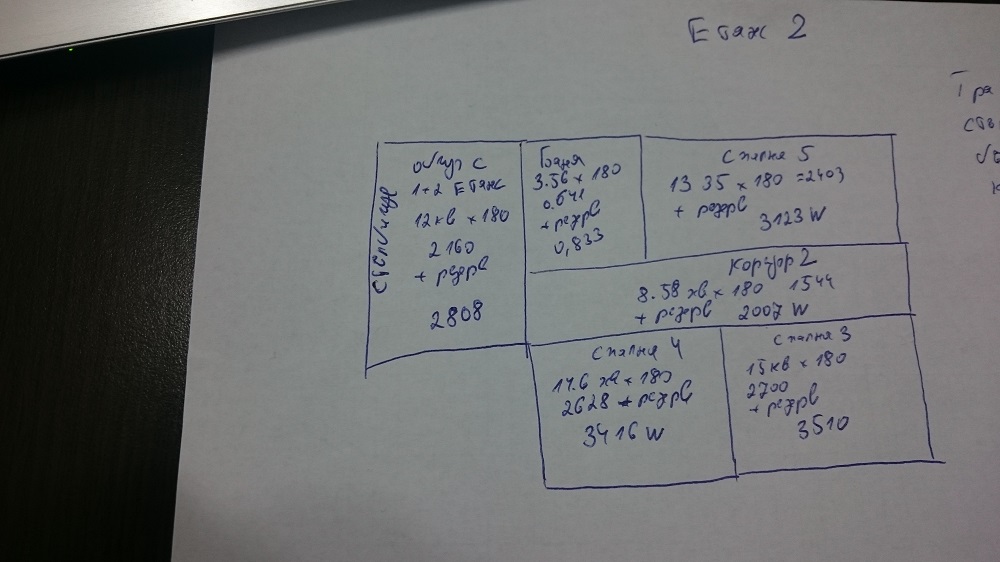 Етаж 2
Стълбище
общ с
1+2 Етаж
12кв х 180
2160
+ резерв
2808
Баня
3.56 х 180
0.641
+ резерв
0,833
Спалня 5
13 35 х 180 = 2403
+ резерв
3123 W
Коридор 2
8.58 кв х 180 1544
+ резерв 2007 W
Спалня 4
14.6 кв х 180
2628 + резерв
3416 W
Спалня 3
15кв х 180
2700
+ резерв
3510